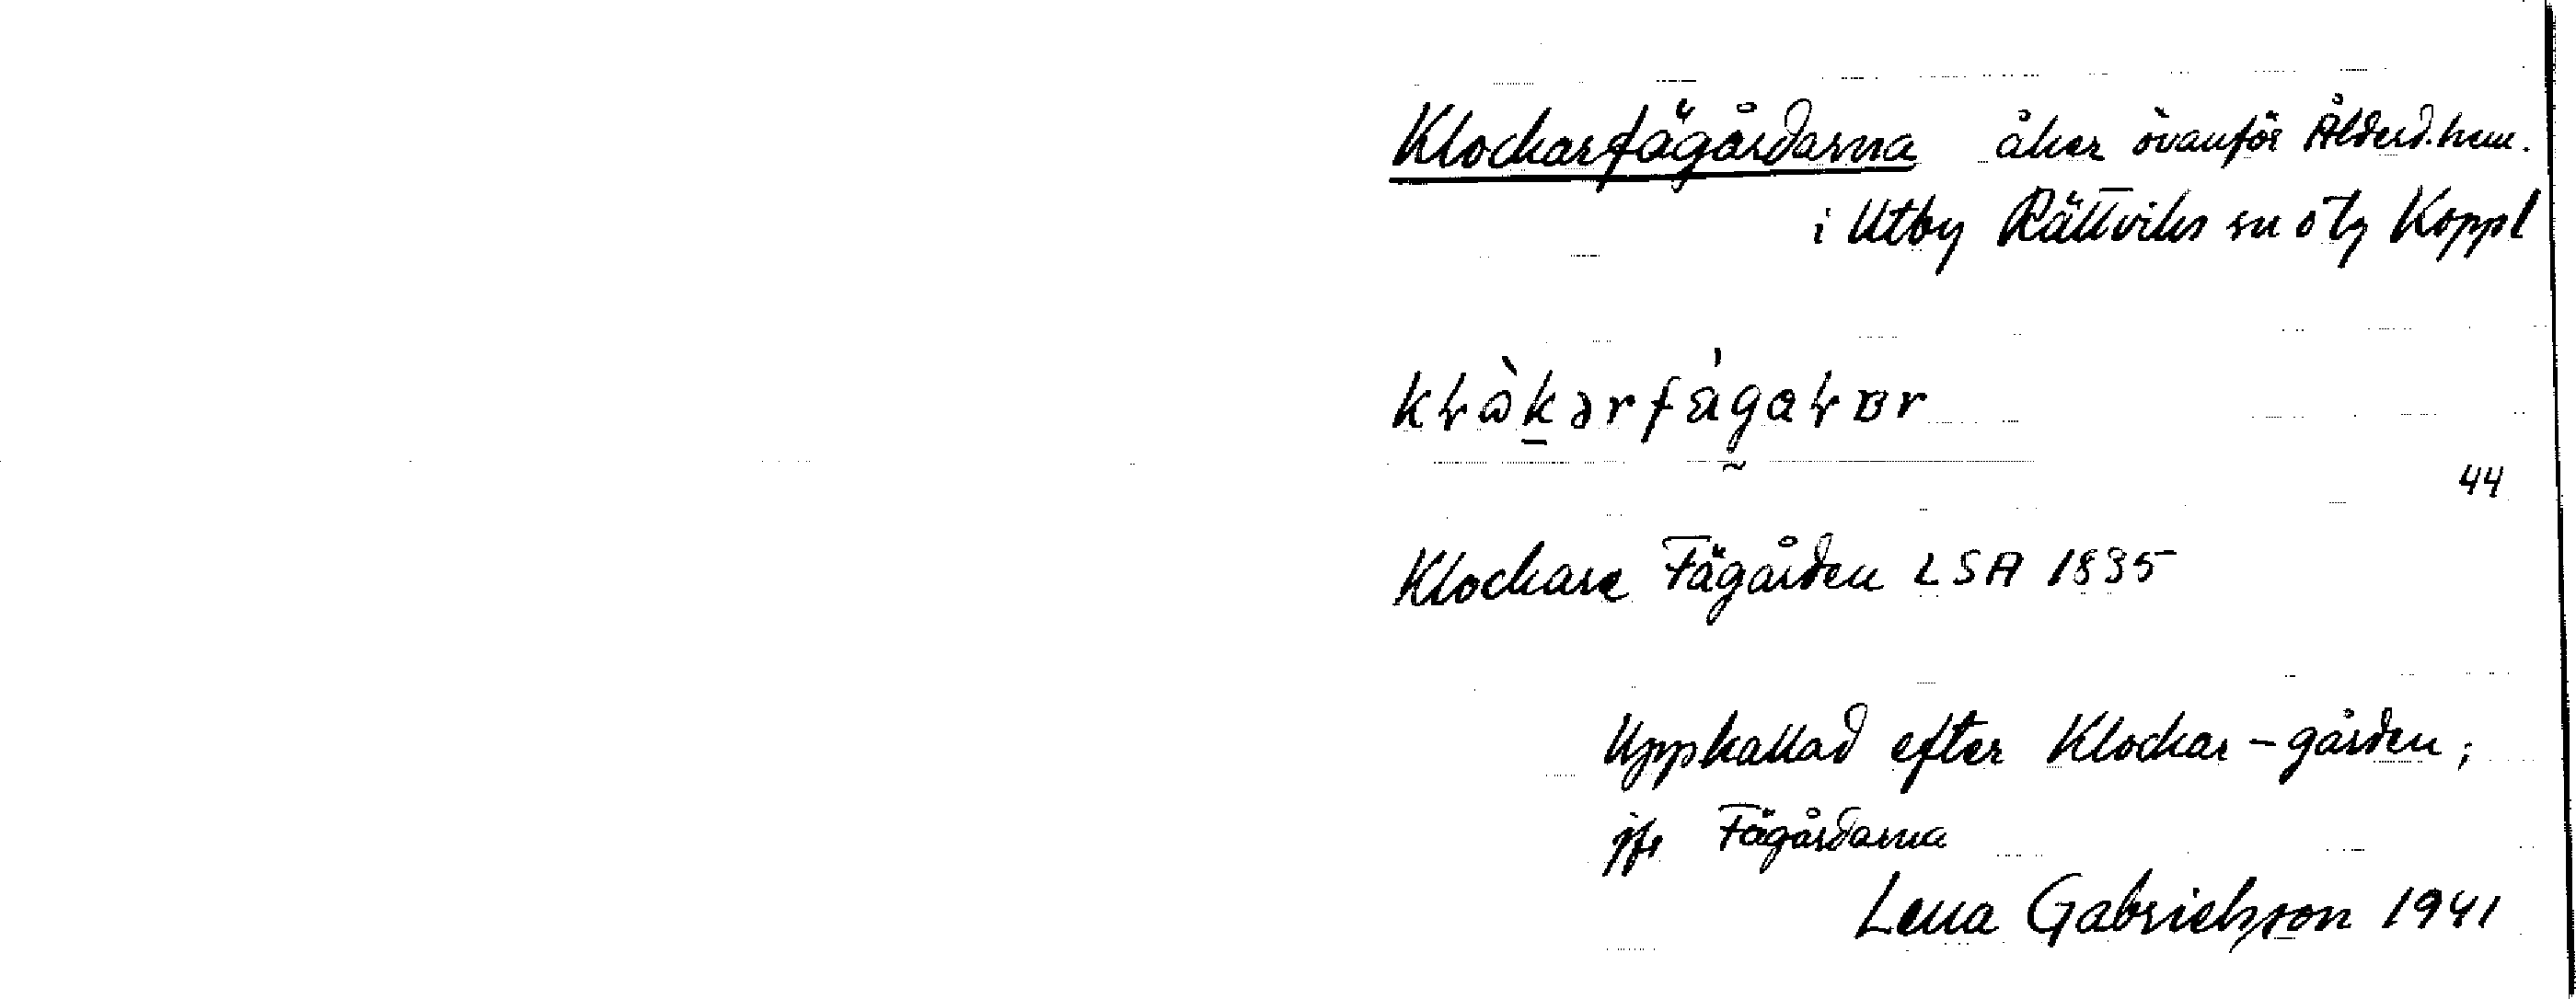 Klockarfägårdarna åker ovanför Ålderd.hem.
i Utby Rättviks sn o tg Koppl
44
Klockare Fägården LSA 1835
Uppkallad efter Klockar-gården;
jfr Fägårdarna
Lena Gabrielsson 1941